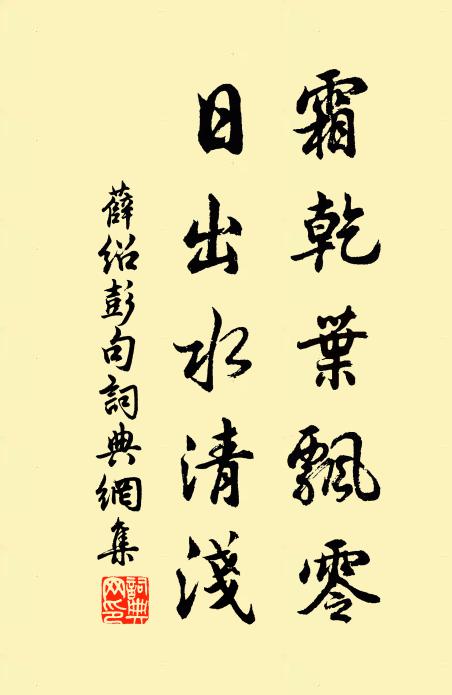 霜乾葉飄零
日出水清淺
薛紹彭句詞典網集
詞典網印